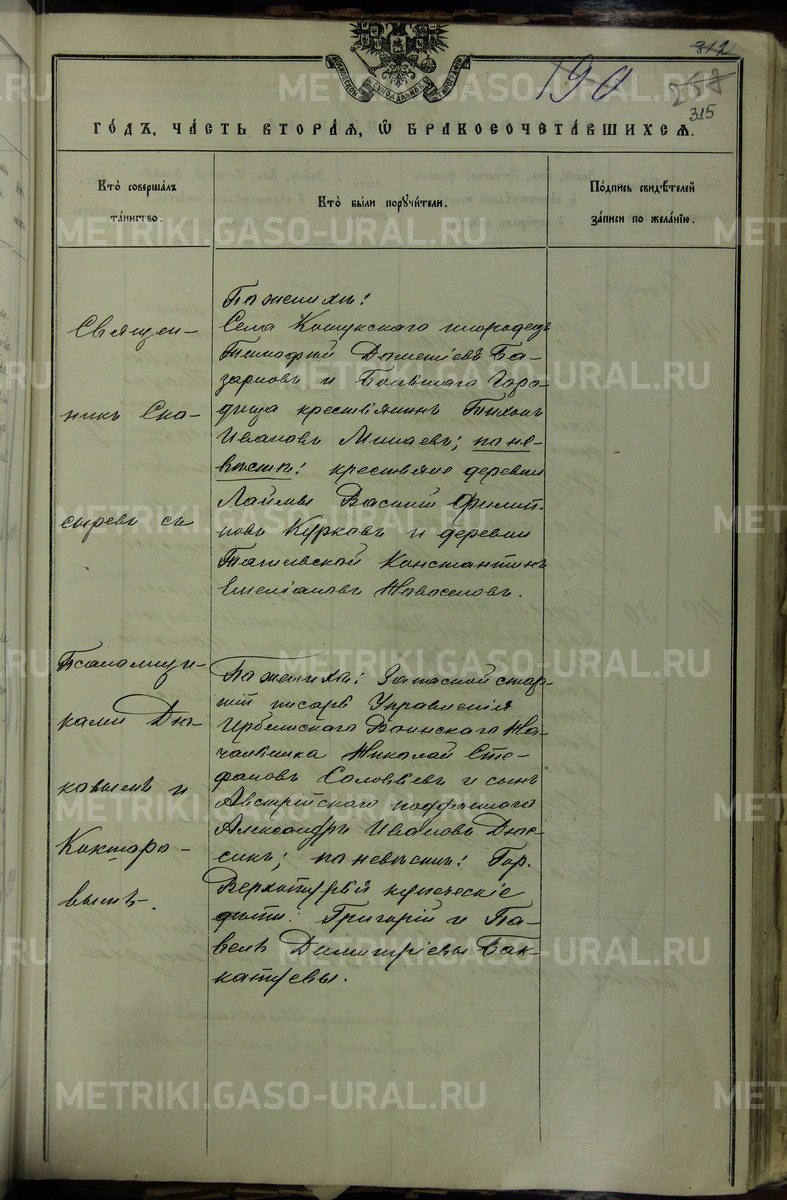 312
190
258
315
МОСКОВСКОЙ СѴНОДАЛЬНОЙ ТИПОГРАФІИ
ГО́ДЪ, ЧА́СТЬ ВТОРА́Я, Ѽ БРАКОСОЧЕТА́ВШИХСЯ.
Кто̀ соверша́лъ
та́инство.
Кто̀ бы́ли порꙋчи́тели.
По́дпись свидѣ́телей
за́писи по жела́нїю.
Священ-
никъ Ска-
сыревъ съ
По женихѣ:
Села Кошукскаго инородецъ
Тимофей Дометіевъ Ба-
зарновъ и Большаго Горо-
дища крестьянинъ Тихонъ
Ивановъ Минаевъ; по не-
вѣстѣ: крестьяне деревни
Лаймы Василій Филип-
повъ Курковъ и деревни
Константинъ
Емеліановъ Новоселовъ.
Псаломщи-
ками Дья-
ковымъ и
Кокшаро-
вымъ.
По женихѣ: Запасной стар-
шій писарь Управленія
Ирбитскаго Воинскаго На-
чальника Николай Сте-
фановъ Соловьевъ и сынъ
Австрійскаго подданнаго
Александръ Ивановъ
по невѣстѣ: Гор.
Верхотурья купеческіе
дѣти: Григорій и Па-
велъ Димитріевы
METRIKI.GASO-URAL.RU